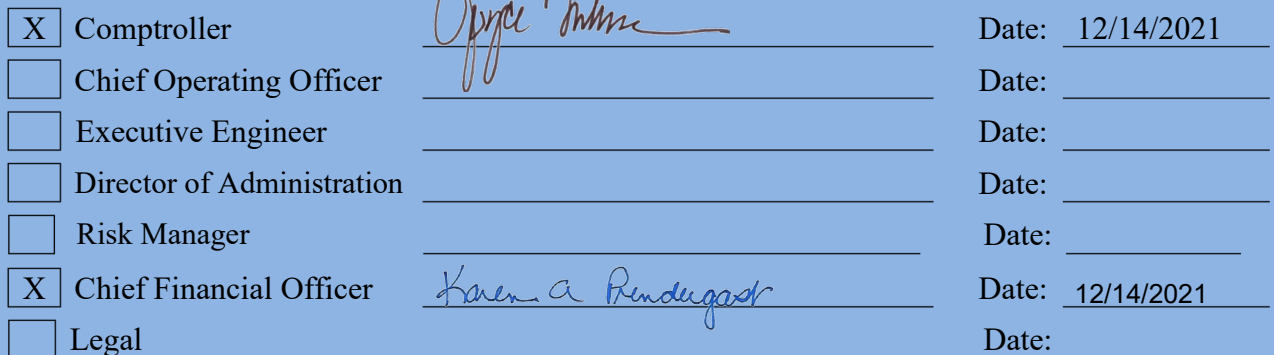 X Comptroller Date: 12/14/2021
Chief Operating Officer Date:
Executive Engineer Date:
Director of Administration Date:
Risk Manager Date:
X Chief Financial Officer Karen A Prendergast Date: 12/14/2021
Legal Date: